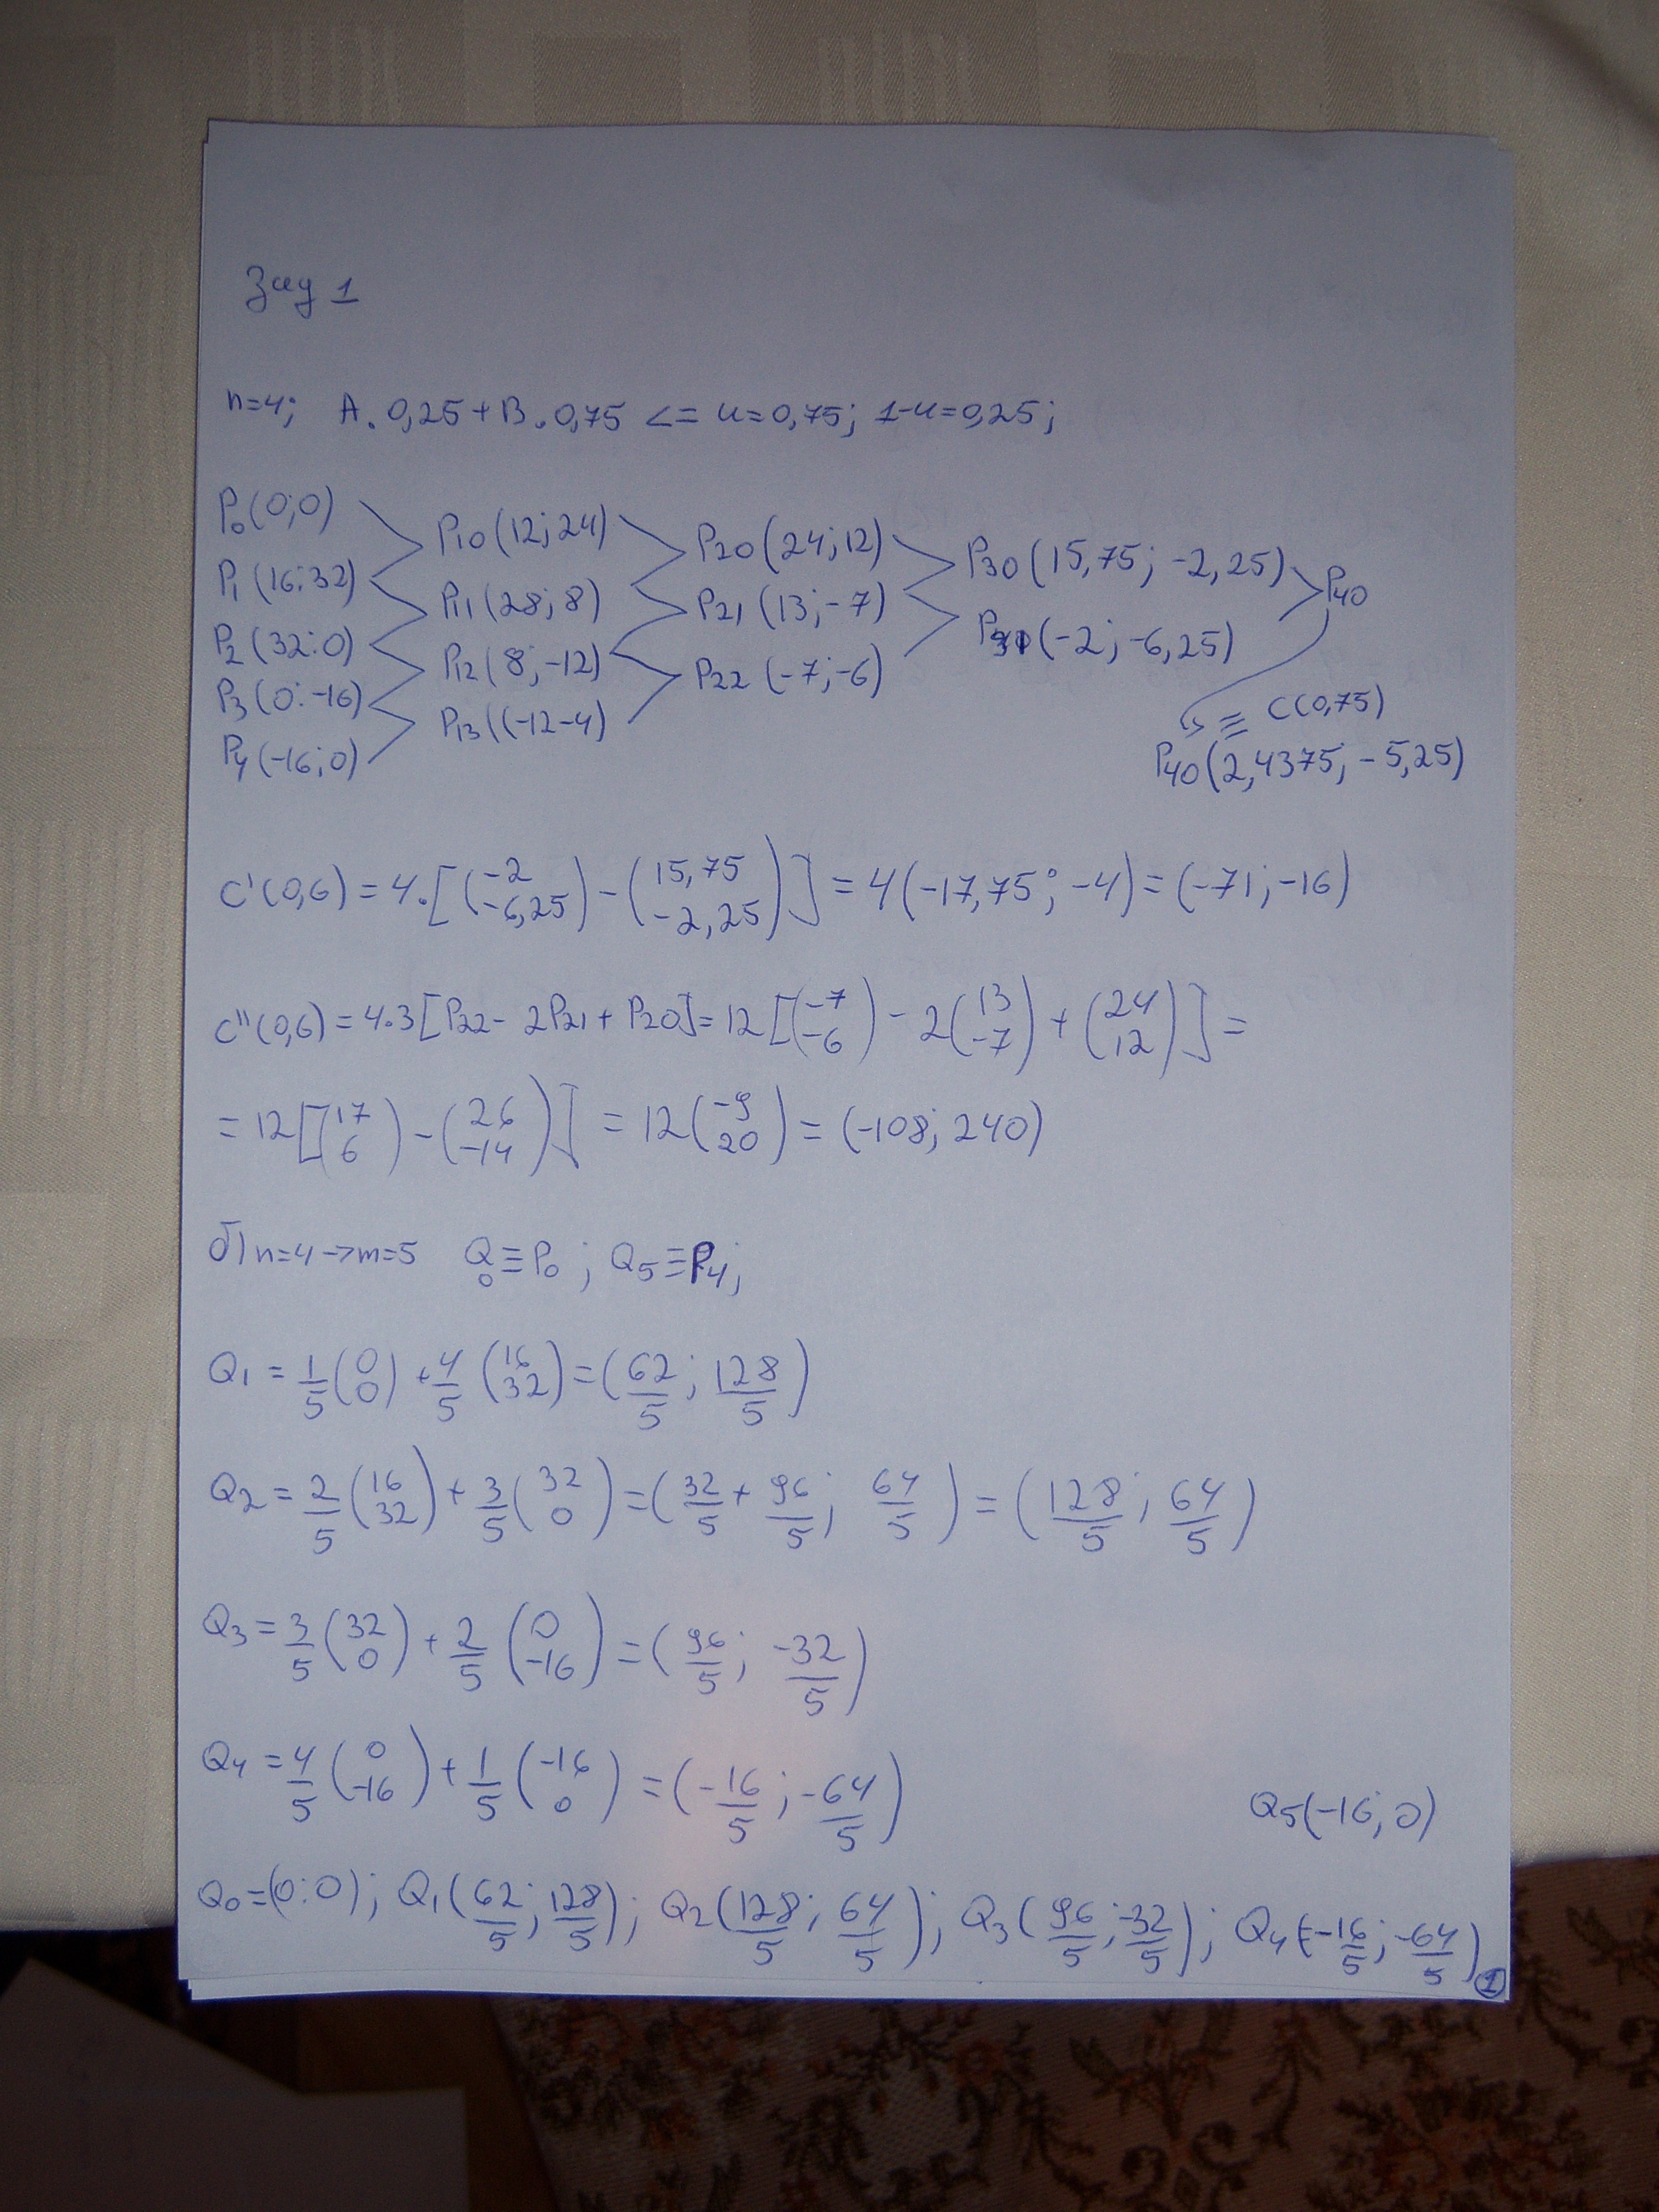 Зад 1
n=4; A. 0,25 + B. 0,75 <= u=0,75; 1-u=0,25;
P0(0;0)
P1(16;32)
P2(32;0)
P3(0;-16)
P4(-16;0)
P10(12;24)
P11(28;8)
P12(8;-12)
P13((-12-4)
P20(24;12)
P21(13;-7)
P22(-7;-6)
P30(15,75; -2,25)
P31(-2; -6,25)
P40
≡ C(0,75)
P40(2,4375; -5,25)
C'(0,6) = 4.[(-2 -6,25) - (15,75 -2,25)] = 4(-17,75; -4) = (-71; -16)
C''(0,6) = 4.3[P22 - 2P21 + P20] = 12[(-7 -6) - 2(13 -7) + (24 12)] =
= 12[(17 6) - (26 -14)] = 12(-9 20) = (-108; 240)
б) n=4 -> m=5 Q0 ≡ P0; Q5 ≡ P4;
Q1 = 1/5 (0 0) + 4/5 (16 32) = (62/5; 128/5)
Q2 = 2/5 (16 32) + 3/5 (32 0) = (32/5 + 96/5; 64/5) = (128/5; 64/5)
Q3 = 3/5 (32 0) + 2/5 (0 -16) = (96/5; -32/5)
Q4 = 4/5 (0 -16) + 1/5 (-16 0) = (-16/5; -64/5)
Q5(-16; 0)
Q0=(0;0); Q1(62/5; 128/5); Q2(128/5; 64/5); Q3(96/5; -32/5); Q4(-16/5; -64/5)
1